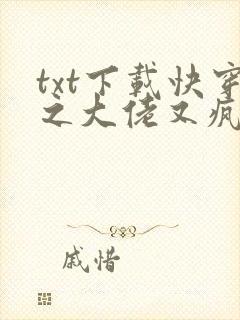 txt下載快穿
之大佬又疯
戚惜